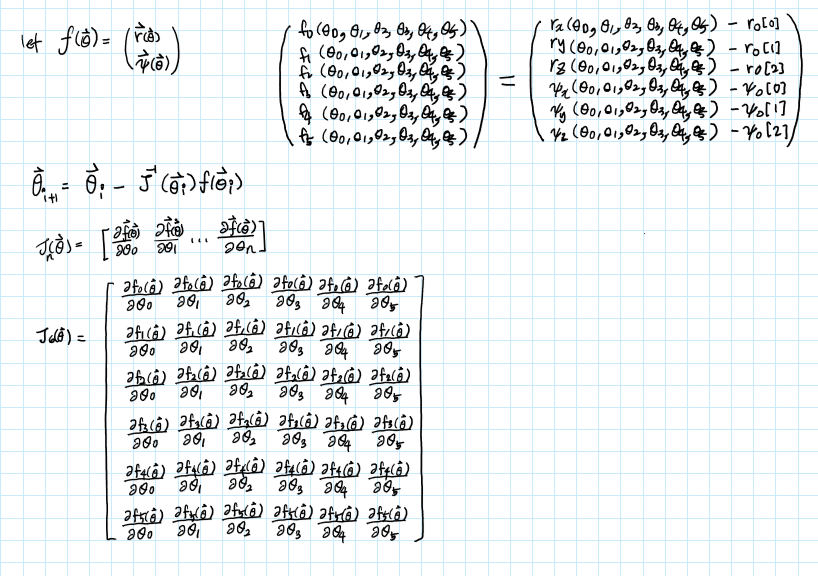 let f(θ⃗) = ( r⃗(θ⃗) ψ⃗(θ⃗) )
( f₀ (θ₀, θ₁, θ₂, θ₃, θ₄, θ₅) ) = ( rx (θ₀, θ₁, θ₂, θ₃, θ₄, θ₅) − r₀[0] )
( f₁ (θ₀, θ₁, θ₂, θ₃, θ₄, θ₅) ) ( ry (θ₀, θ₁, θ₂, θ₃, θ₄, θ₅) − r₀[1] )
( f₂ (θ₀, θ₁, θ₂, θ₃, θ₄, θ₅) ) ( rz (θ₀, θ₁, θ₂, θ₃, θ₄, θ₅) − r₀[2] )
( f₃ (θ₀, θ₁, θ₂, θ₃, θ₄, θ₅) ) ( ψx (θ₀, θ₁, θ₂, θ₃, θ₄, θ₅) − ψ₀[0] )
( f₄ (θ₀, θ₁, θ₂, θ₃, θ₄, θ₅) ) ( ψy (θ₀, θ₁, θ₂, θ₃, θ₄, θ₅) − ψ₀[1] )
( f₅ (θ₀, θ₁, θ₂, θ₃, θ₄, θ₅) ) ( ψz (θ₀, θ₁, θ₂, θ₃, θ₄, θ₅) − ψ₀[2] )
θ⃗ᵢ₊₁ = θ⃗ᵢ − J⁻¹(θ⃗ᵢ) f(θ⃗ᵢ)
Jₙ(θ⃗) = [ ∂f⃗(θ⃗)/∂θ₀ ∂f⃗(θ⃗)/∂θ₁ ... ∂f⃗(θ⃗)/∂θₙ ]
J₆(θ⃗) = [ ∂f₀(θ⃗)/∂θ₀ ∂f₀(θ⃗)/∂θ₁ ∂f₀(θ⃗)/∂θ₂ ∂f₀(θ⃗)/∂θ₃ ∂f₀(θ⃗)/∂θ₄ ∂f₀(θ⃗)/∂θ₅
∂f₁(θ⃗)/∂θ₀ ∂f₁(θ⃗)/∂θ₁ ∂f₁(θ⃗)/∂θ₂ ∂f₁(θ⃗)/∂θ₃ ∂f₁(θ⃗)/∂θ₄ ∂f₁(θ⃗)/∂θ₅
∂f₂(θ⃗)/∂θ₀ ∂f₂(θ⃗)/∂θ₁ ∂f₂(θ⃗)/∂θ₂ ∂f₂(θ⃗)/∂θ₃ ∂f₂(θ⃗)/∂θ₄ ∂f₂(θ⃗)/∂θ₅
∂f₃(θ⃗)/∂θ₀ ∂f₃(θ⃗)/∂θ₁ ∂f₃(θ⃗)/∂θ₂ ∂f₃(θ⃗)/∂θ₃ ∂f₃(θ⃗)/∂θ₄ ∂f₃(θ⃗)/∂θ₅
∂f₄(θ⃗)/∂θ₀ ∂f₄(θ⃗)/∂θ₁ ∂f₄(θ⃗)/∂θ₂ ∂f₄(θ⃗)/∂θ₃ ∂f₄(θ⃗)/∂θ₄ ∂f₄(θ⃗)/∂θ₅
∂f₅(θ⃗)/∂θ₀ ∂f₅(θ⃗)/∂θ₁ ∂f₅(θ⃗)/∂θ₂ ∂f₅(θ⃗)/∂θ₃ ∂f₅(θ⃗)/∂θ₄ ∂f₅(θ⃗)/∂θ₅ ]